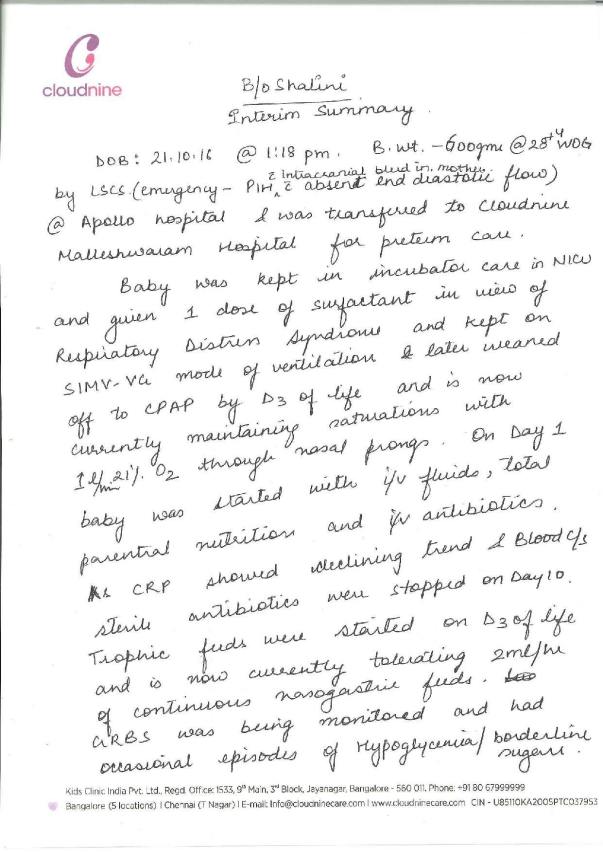 cloudnine
B/o Shalini
Interim Summary.
DOB: 21.10.16 @ 1:18 pm. B.wt. - 600gms @ 28+4 WOG
c̄ intracranial bleed in mother
by LSCS (emergency - PIH, c̄ absent end diastolic flow)
@ Apollo hospital & was transferred to Cloudnine
Malleshwaram Hospital for preterm care.
Baby was kept in incubator care in NICU
and given 1 dose of surfactant in view of
Respiratory Distress Syndrome and kept on
SIMV-VG mode of ventilation & later weaned
off to CPAP by D3 of life and is now
currently maintaining saturations with
1 l/min 21% O2 through nasal prongs. On Day 1
baby was started with i/v fluids, total
parentral nutrition and i/v antibiotics.
As CRP showed declining trend & Blood c/s
sterile antibiotics were stopped on Day 10.
Trophic feeds were started on D3 of life
and is now currently tolerating 2ml/hr
of continuous nasogastric feeds.
GRBS was being monitored and had
occasional episodes of Hypoglycemia/borderline
sugars.
Kids Clinic India Pvt. Ltd., Regd. Office: 1533, 9th Main, 3rd Block, Jayanagar, Bangalore - 560 011. Phone: +91 80 67999999
Bangalore (5 locations) I Chennai (T Nagar) I E-mail: Info@cloudninecare.com I www.cloudninecare.com CIN - U85110KA2005PTC037953